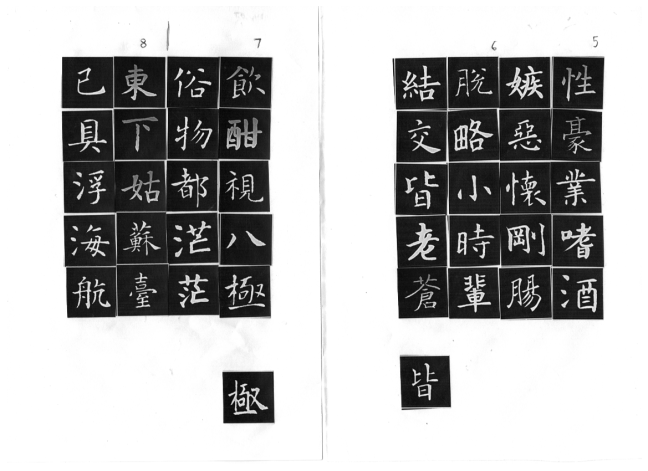 5
性豪業嗜酒
嫉惡懷剛腸
6
脫略小時輩
結交皆老蒼
皆
7
飲酣視八極
俗物都茫茫
極
8
東下姑蘇臺
已具浮海航